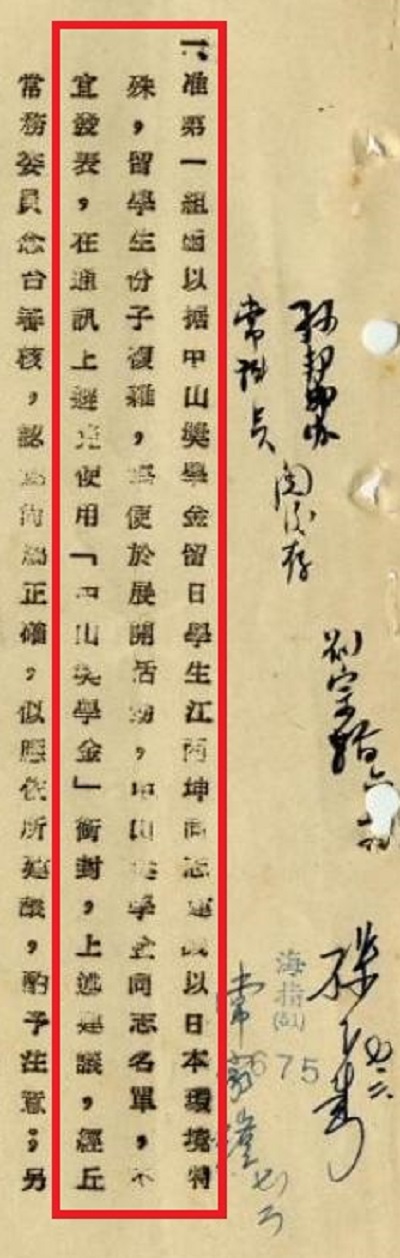 閱後存
海指
(51)
675
一、准第一組函以據中山獎學金留日學生江丙坤同志建議以日本環境特
殊，留學生份子複雜，為便於展開活動，中山獎學金同志名單，不
宜發表，在通訊上避免使用「中山獎學金」銜封，上述建議，經丘
常務委員念台審核，認為尚為正確，似應依所建議，酌予注意；另